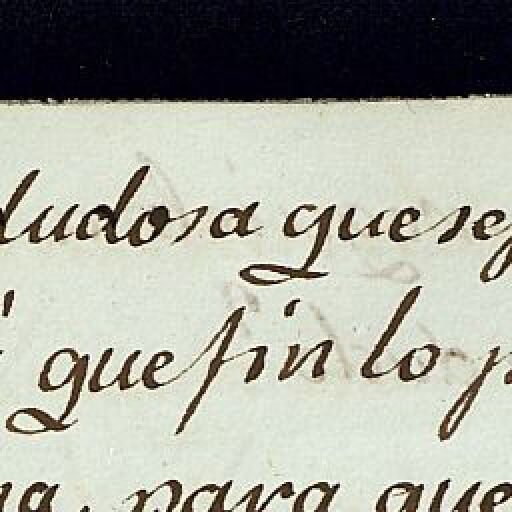 dudosa que se
que sin lo
para que